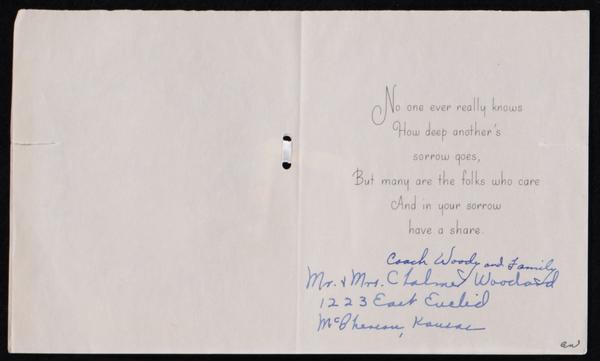 No one ever really knows
How deep another's
sorrow goes,
But many are the folks who care
And in your sorrow
have a share.
Coach Woody and Family
Mr. & Mrs. Chalmer Woodard
1223 East Euclid
McPherson, Kansas